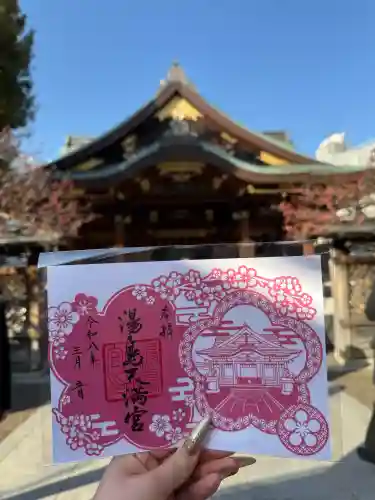 奉拝
湯島天満宮
令和八年
三月